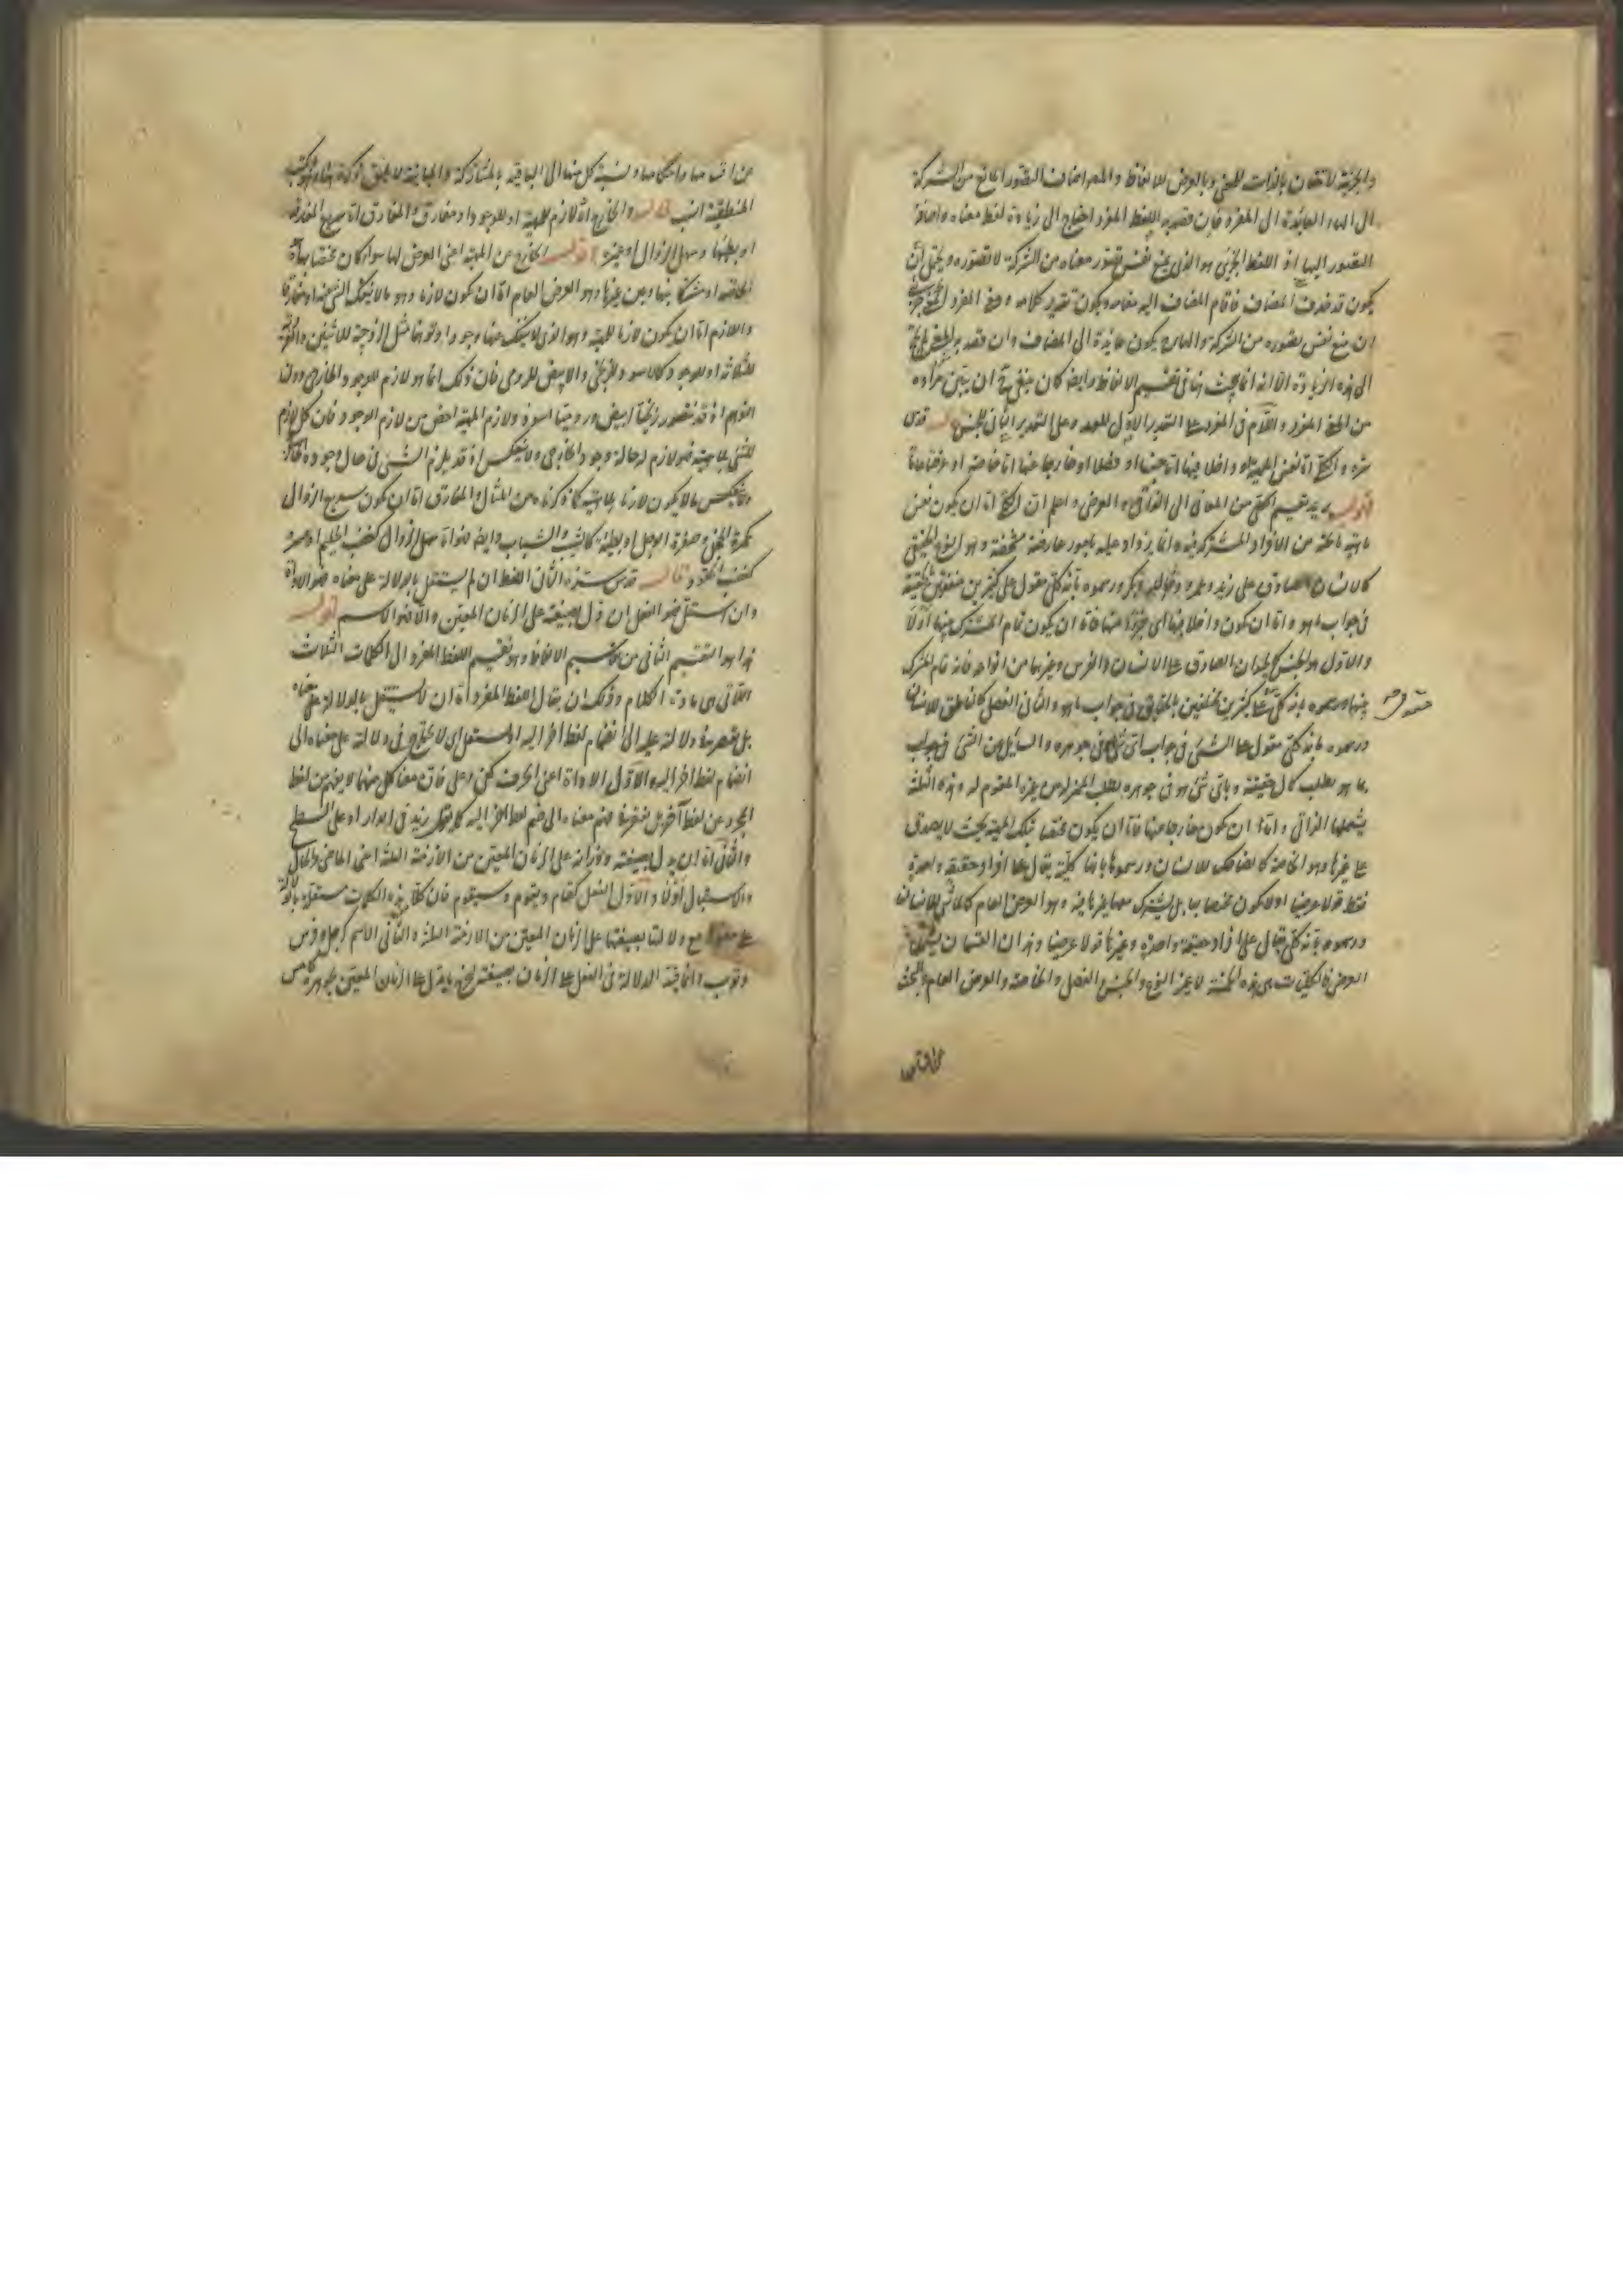 والجزئية لاحقتان بالذات للمعنى وبالعرض للألفاظ والمصر اضاف التصور المانع من الشركة
الى الهاء العائدة الى المفرد فان قصد به اللفظ المفرد احتاج الى زيادة لفظ معناه واضافة
التصور اليها اذ اللفظ الجزئي هو الذي يمنع نفس تصور معناه من الشركة لا تصوره ويحتمل ان
يكون قد حذف المضاف فاقام المضاف اليه مقامه ويكون تقدير كلامه ومعنى المفرد
ان منع نفس تصوره من الشركة والهاء يكون عائدة الى المضاف وان قصد به المعنى لم يحتج
الى هذه الزيادة الا انه انما يبحث هنا في تقسيم الالفاظ وايضا كان ينبغي ان يبين مراده
من المعنى المفرد واللام في المفرد على التقدير الاول للعهد وعلى التقدير الثاني للجنس قال قدس
سره والكلي اما نفس المهية او داخل فيها اما جنسا او فصلا او خارجا عنها اما خاصة او عرضا عاما
اقول يريد تقسيم الكلي من المعاني الى الذاتي والعرضي واعلم ان الكلي اما ان يكون نفس
ماهية ما تحته من الافراد المشتركة فيه وانما يزداد عليه بامور عارضة مشخصة وهو النوع الحقيقي
كالانسان الصادق على زيد وعمرو وخالد وبكر ورسموه بانه كلي مقول على كثيرين متفقين بالحقيقة
في جواب ما هو واما ان يكون داخلا فيها اى جزءا منها فاما ان يكون تمام المشترك بينها اولا
والاول هو الجنس كالحيوان الصادق على الانسان والفرس وغيرهما من انواعه فانه تمام المشترك
بينها ورسموه بانه كلي على كثيرين مختلفين بالحقايق في جواب ما هو والثاني الفصل كالناطق للانسان
مقول
ورسموه بانه كلي مقول على الشيء في جواب اى شيء في جوهره والسائل عن الشيء في جواب
ما هو يطلب كمال حقيقته وباى شيء هو في جوهره يطلب المميز له عن غيره المقوم له وهذه الثلثة
يشملها الذاتي واما ان يكون خارجا عنها فاما ان يكون مختصا بتلك المهية بحيث لا يصدق
على غيرها وهو الخاصة كالضاحك للانسان ورسموها بانها كلية يقال على افراد حقيقة واحدة
فقط قولا عرضيا اولا يكون مختصا بها بل يشترك معها غيرها فيه وهو العرض العام كالماشي للانسان
ورسموه بانه كلي يقال على افراد حقيقة واحدة وغيرها قولا عرضيا وهذان القسمان يشملهما
العرضي فالكليات هي هذه الخمسة لا غير النوع والجنس والفصل والخاصة والعرض العام والبحث
عن اقسامها واحكامها ونسبة كل منها الى الباقية بالمشاركة والمباينة لا يليق ذكره هنا وهو بالكتب
المنطقية انسب قال والخارج اما لازم للمهية او للوجود او مفارق والمفارق اما سريع المفارقة
او بطيئها وسهل الزوال او عسره اقول الخارج عن المهية اعنى العرضي لها سواء كان مختصا بها وهو
الخاصة او مشتركا بينها وبين غيرها وهو العرض العام اما ان يكون لازما وهو ما لا ينفك الشيء عنه او مفارقا
واللازم اما ان يكون لازما للمهية وهو الذي لا ينفك عنها وجودا وتوهما مثل الزوجية للاثنين والفردية
للثلثة او للوجود كالاسود للزنجي والابيض للرومي فان ذلك انما هو لازم للوجود الخارجي دون
التوهم اذ قد نتصور زنجيا ابيض وروميا اسود ولازم المهية اخص من لازم الوجود فان كل لازم
للشيء بماهيته فهو لازم له حالة وجوده الخارجي ولا ينعكس اذ قد يلزم الشيء في حال وجوده
ما لا يكون لازما لماهيته كما ذكرناه من المثال والمفارق اما ان يكون سريع الزوال
كحمرة الخجل وصفرة الوجل او بطيئه كالشيب والشباب وايضا فهو اما سهل الزوال كغضب الحليم او عسره
كغضب الحقود قال قدس سره الثاني اللفظ ان لم يستقل بالدلالة على معناه فهو الاداة
وان استقل فهو الفعل ان دل بصيغته على الزمان المعين والا فهو الاسم اقول
هذا هو التقسيم الثاني من تقاسيم الالفاظ وهو تقسيم اللفظ المفرد الى الكلمات الثلاث
اللاتي هي مادة الكلام وذلك ان يقال اللفظ المفرد اما ان لا يستقل بالدلالة على معناه
بل يفتقر في دلالته عليه الى انضمام لفظ اخر اليه او يستقل اى لا يحتاج في دلالته على معناه الى
انضمام لفظ اخر اليه والاول الاداة اعنى الحرف كفي وعلى فان معنا كل منهما لا يفهم من لفظه
المجرد عن لفظ آخر بل يفتقر في فهم معناه الى ضم لفظ اخر اليه كما يقال زيد في الدار او على السطح
والثاني اما ان يدل بصيغته ووزانه على الزمان المعين من الازمنة الثلثة اعنى الماضي والحال
والاستقبال اولا والاول الفعل كقام ويقوم وسيقوم فان كلا من هذه الكلمات مستقلة بالدلالة
على معناها مع دلالتها بصيغتها على الزمان المعين من الازمنة الثلثة والثاني الاسم كرجل وفرس
وثوب وانما قيد الدلالة في الفعل على الزمان بصيغته ليخرج ما يدل على الزمان المعين بجوهره كامس